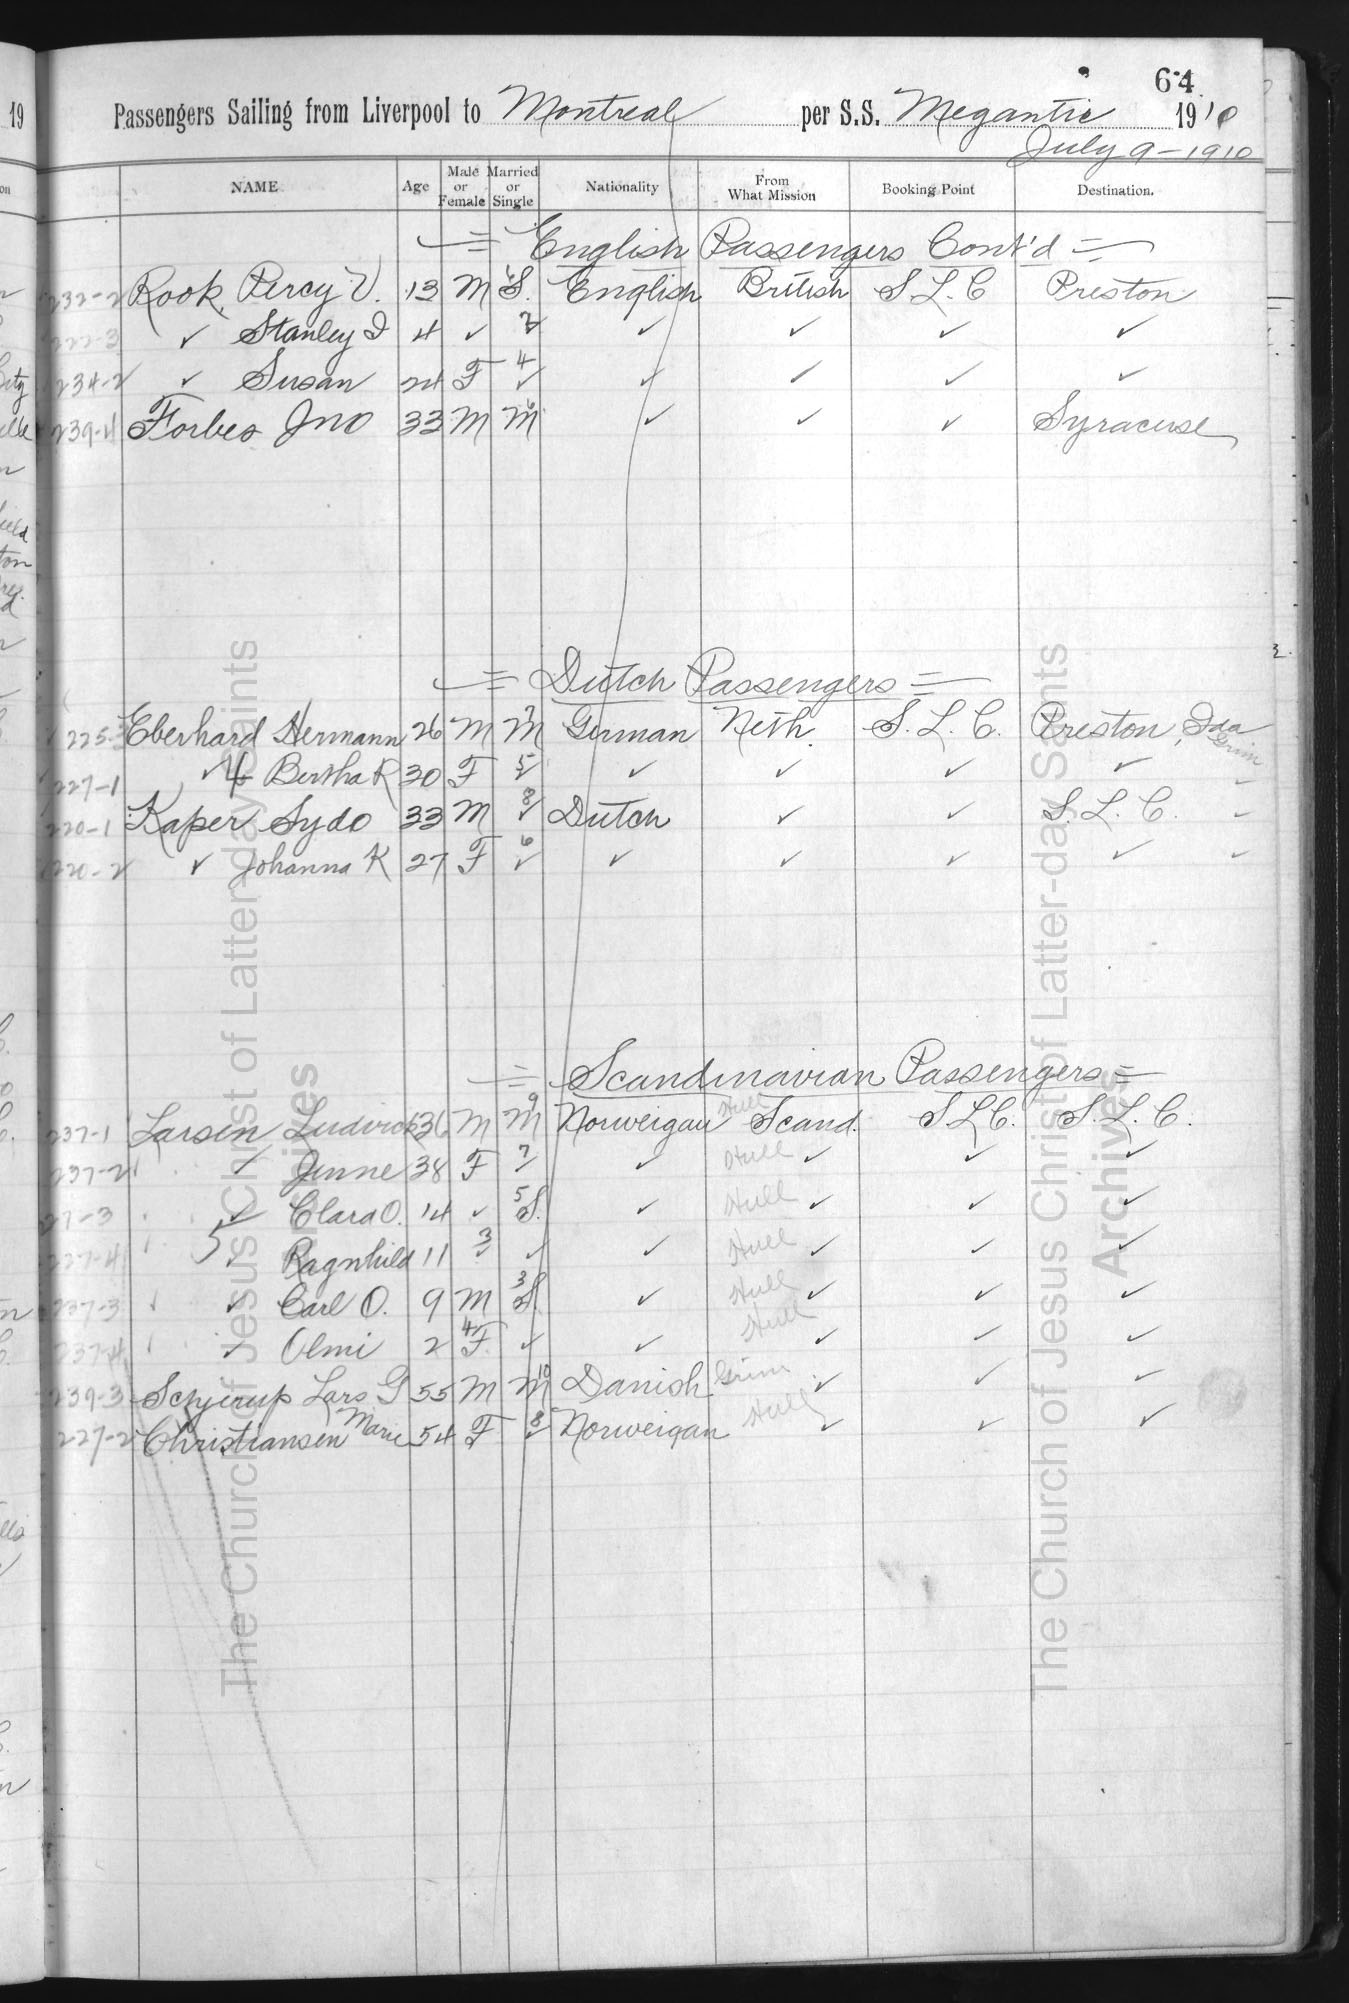 64
Passengers Sailing from Liverpool to Montreal per S.S. Megantic 1910
July 9-1910
NAME Age Male or Female Married or Single Nationality From What Mission Booking Point Destination.
= English Passengers Cont'd =
232-2 Rook, Percy V. 13 M S. English British S.L.C Preston
222-3 ✓ Stanley I 4 ✓ ✓ ✓ ✓ ✓ ✓
234-2 ✓ Susan 24 F 4 ✓ ✓ ✓ ✓ ✓
239-4 Forbes Jno 33 M M ✓ ✓ ✓ Syracuse
= Dutch Passengers =
225-3 Eberhard Hermann 26 M M 7 German Neth. S.L.C. Preston, Ida Grim
227-1 ✓ 4 Bertha R 30 F 5 ✓ ✓ ✓ ✓ ✓
220-1 Kaper Sydo 33 M 8 ✓ Dutch ✓ ✓ S.L.C.
220-2 ✓ Johanna K 27 F 6 ✓ ✓ ✓ ✓ ✓
= Scandinavian Passengers =
237-1 Larsen Ludvick 36 M M 9 Norweigan Hull Scand. S.L.C. S.L.C.
237-2 ✓ Jenne 38 F 7 ✓ ✓ Hull ✓ ✓ ✓
27-3 ✓ Clara O. 14 ✓ 5 S. ✓ Hull ✓ ✓ ✓
227-4 5 ✓ Ragnhild 11 3 ✓ ✓ ✓ Hull ✓ ✓ ✓
237-3 ✓ Carl O. 9 M 3 S. ✓ Hull ✓ ✓ ✓
237-4 ✓ Olmi 2 4 F. ✓ ✓ Hull ✓ ✓ ✓
239-3 Schjerup Lars G 55 M M 10 Danish Grim ✓ ✓ ✓
227-2 Christiansen Marie 54 F 8 ✓ Norweigan Hull ✓ ✓ ✓
The Church of Jesus Christ of Latter-day Saints
The Church of Jesus Christ of Latter-day Saints
Archives